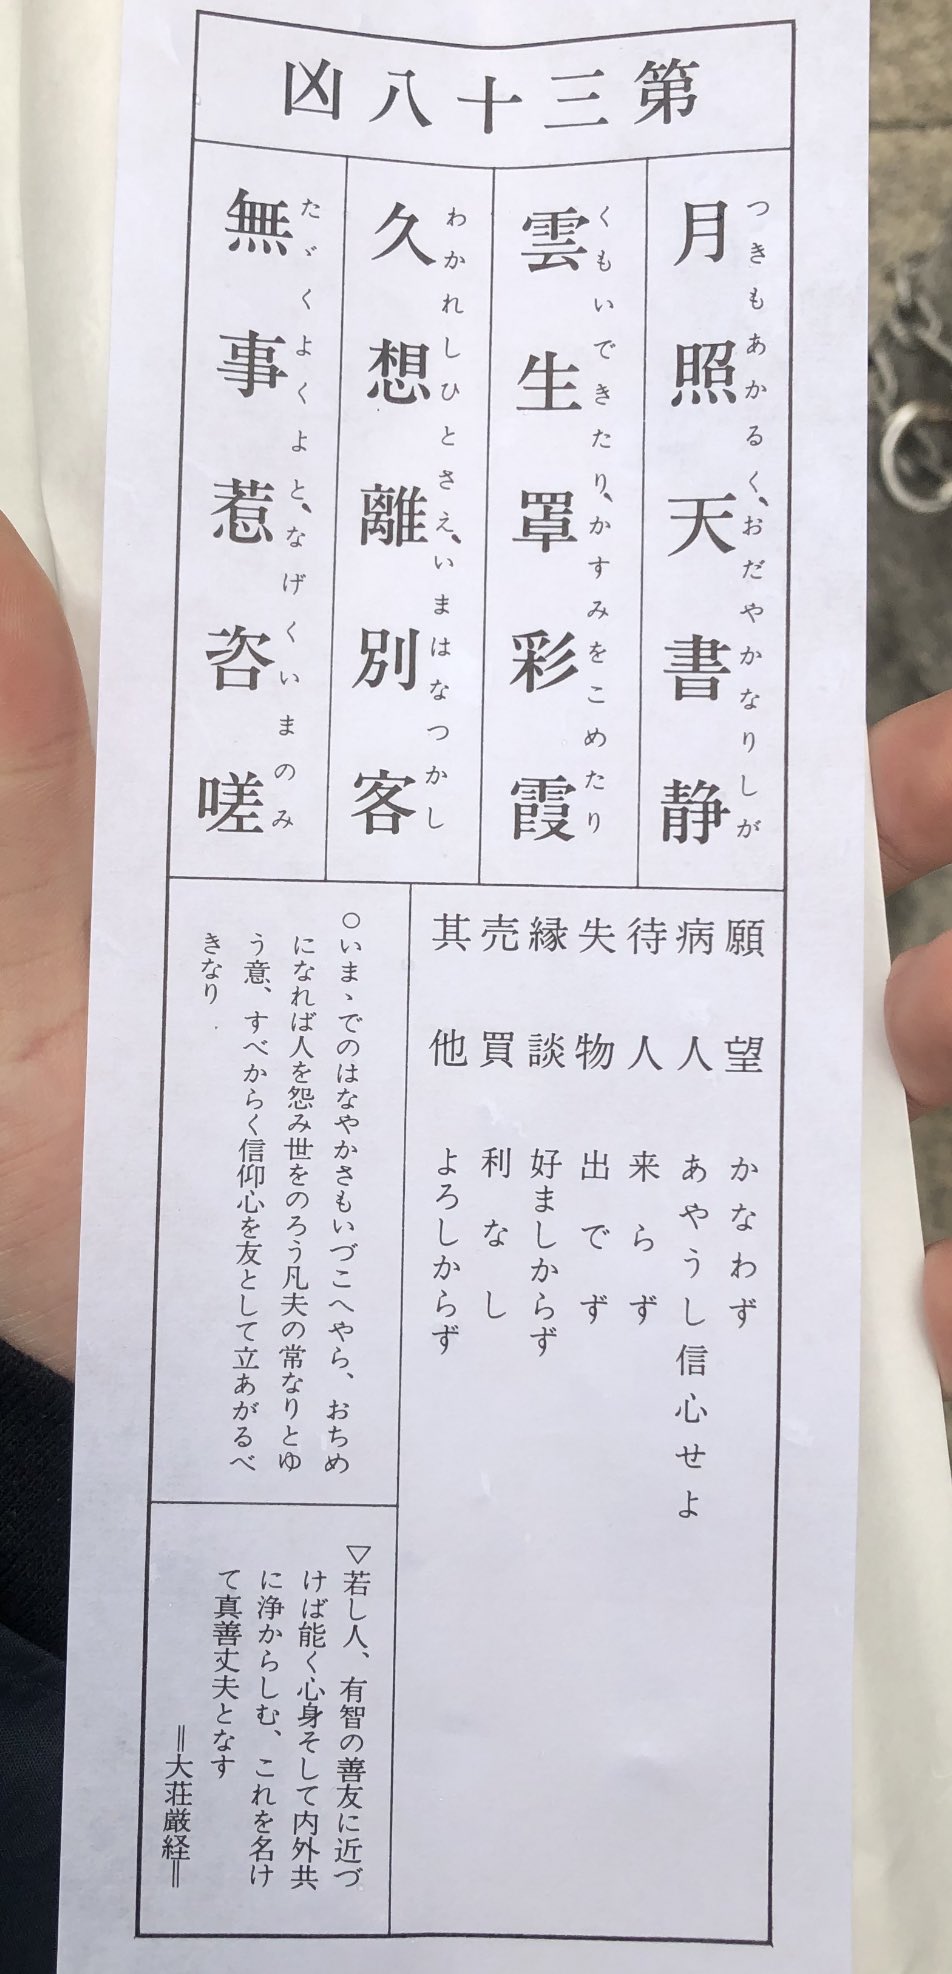 第三十八凶
月照天書静
つきもあかるく、おだやかなりしが
雲生罩彩霞
くもいできたり、かすみをこめたり
久想離別客
わかれしひとさえ、いまはなつかし
無事惹咨嗟
たゞくよくよと、なげくいまのみ
願望 かなわず
病人 あやうし信心せよ
待人 来らず
失物 出でず
縁談 好ましからず
売買 利なし
其他 よろしからず
○いまゝでのはなやかさもいづこへやら、おちめ
になれば人を怨み世をのろう凡夫の常なりとゆ
う意、すべからく信仰心を友として立あがるべ
きなり
▽若し人、有智の善友に近づ
けば能く心身そして内外共
に浄からしむ、これを名け
て真善丈夫となす
＝大荘厳経＝